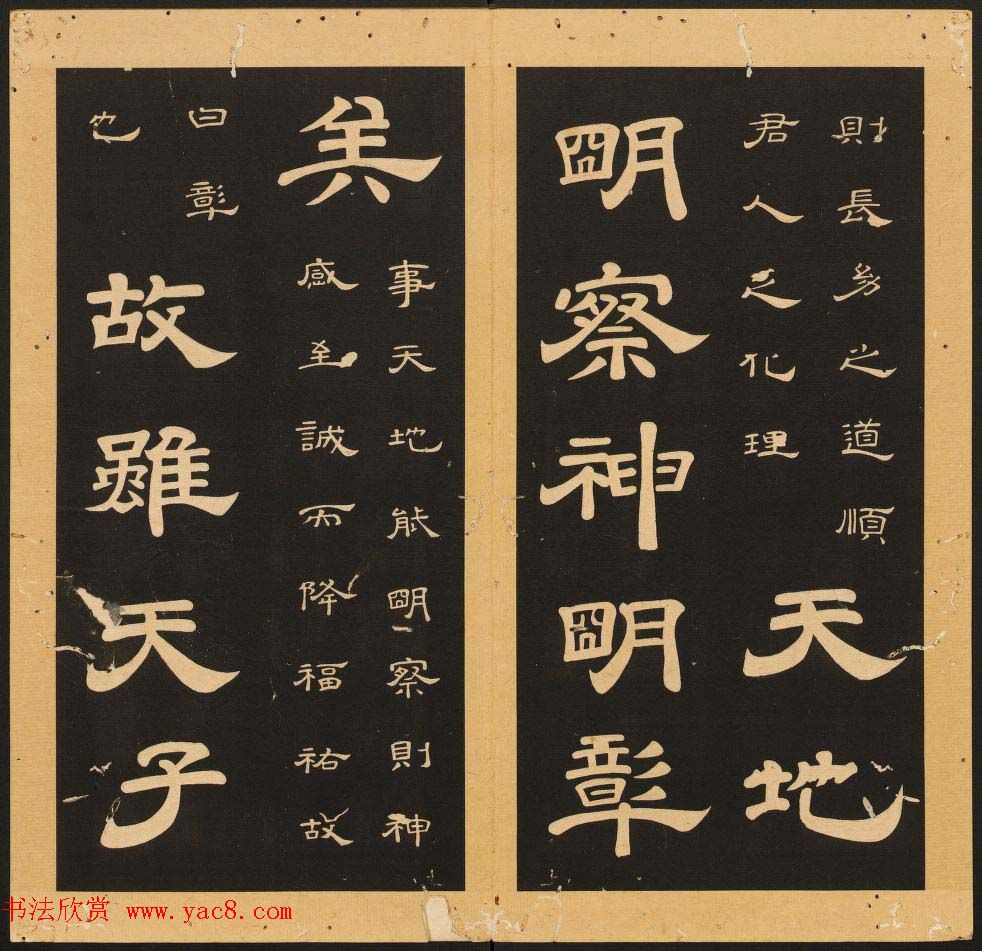 則長幼之道順
君人之化理
天地
明察神明彰
矣
事天地能明察則神
感至誠而降福祐故
曰彰
也
故雖天子
书法欣赏 www.yac8.com